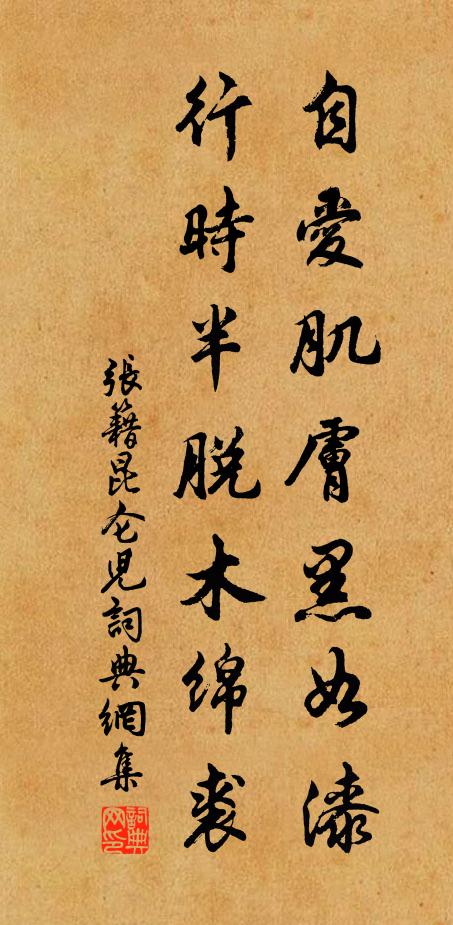 自愛肌膚黑如漆
行時半脱木綿裘
張籍昆仑児詞典網集
詞典网印